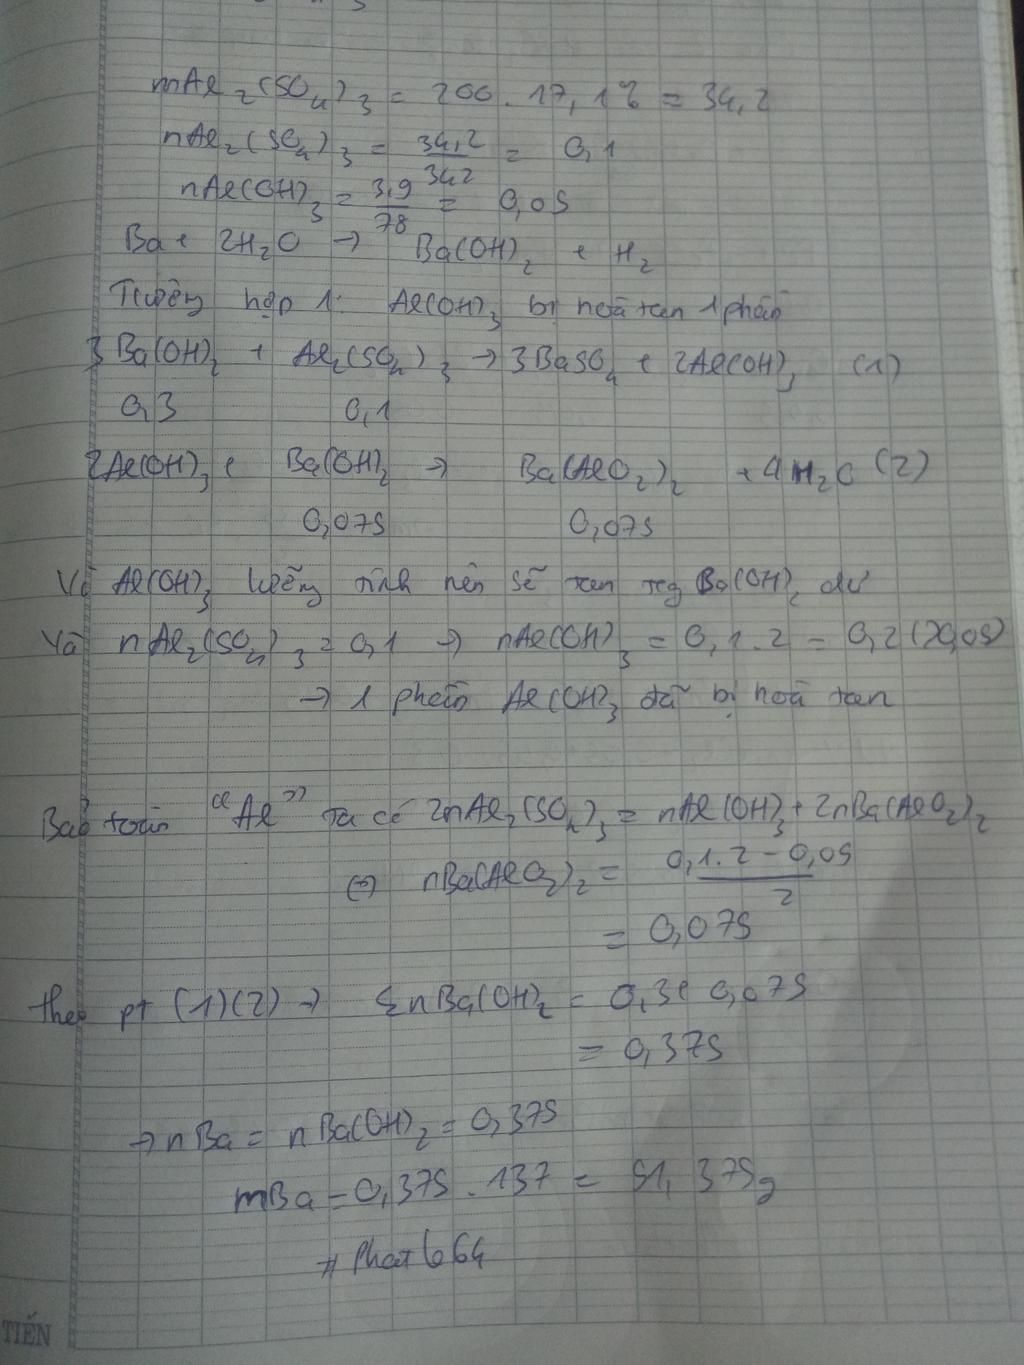 mAl₂(SO₄)₃ = 200 . 17,1% = 34,2
nAl₂(SO₄)₃ = 34,2/342 = 0,1
nAl(OH)₃ = 3,9/78 = 0,05
Ba + 2H₂O → Ba(OH)₂ + H₂
Trường hợp 1: Al(OH)₃ bị hoà tan 1 phần
3Ba(OH)₂ + Al₂(SO₄)₃ → 3BaSO₄ + 2Al(OH)₃ (1)
0,3 0,1
2Al(OH)₃ + Ba(OH)₂ → Ba(AlO₂)₂ + 4H₂O (2)
0,075 0,075
Vì Al(OH)₃ lưỡng tính nên sẽ tan trg Ba(OH)₂ dư
Và nAl₂(SO₄)₃ = 0,1 → nAl(OH)₃ = 0,1.2 = 0,2 (>0,05)
→ 1 phần Al(OH)₃ đã bị hoà tan
Bảo toàn "Al" ta có 2nAl₂(SO₄)₃ = nAl(OH)₃ + 2nBa(AlO₂)₂
(=) nBa(AlO₂)₂ = (0,1.2 - 0,05)/2
= 0,075
theo pt (1)(2) → ΣnBa(OH)₂ = 0,3 + 0,075
= 0,375
→ nBa = nBa(OH)₂ = 0,375
mBa = 0,375 . 137 = 51,375g
TIẾN